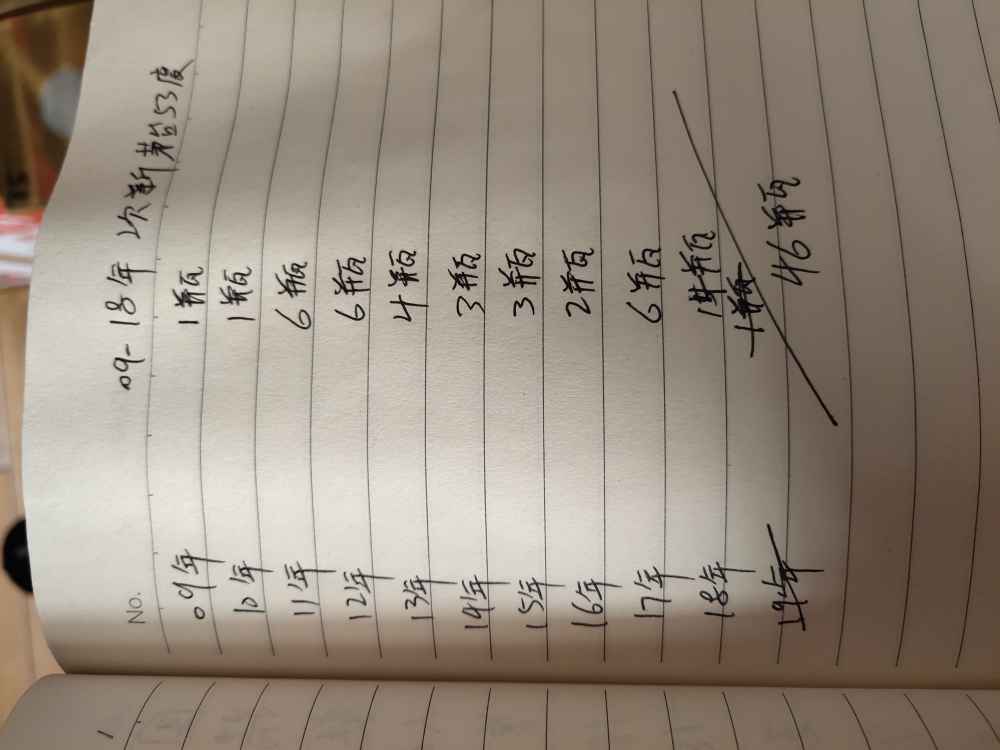 No.
09-18年 次新茅台53度
09年 1瓶
10年 1瓶
11年 6瓶
12年 6瓶
13年 4瓶
14年 3瓶
15年 3瓶
16年 2瓶
17年 6瓶
18年 14瓶
19年 1瓶
46瓶